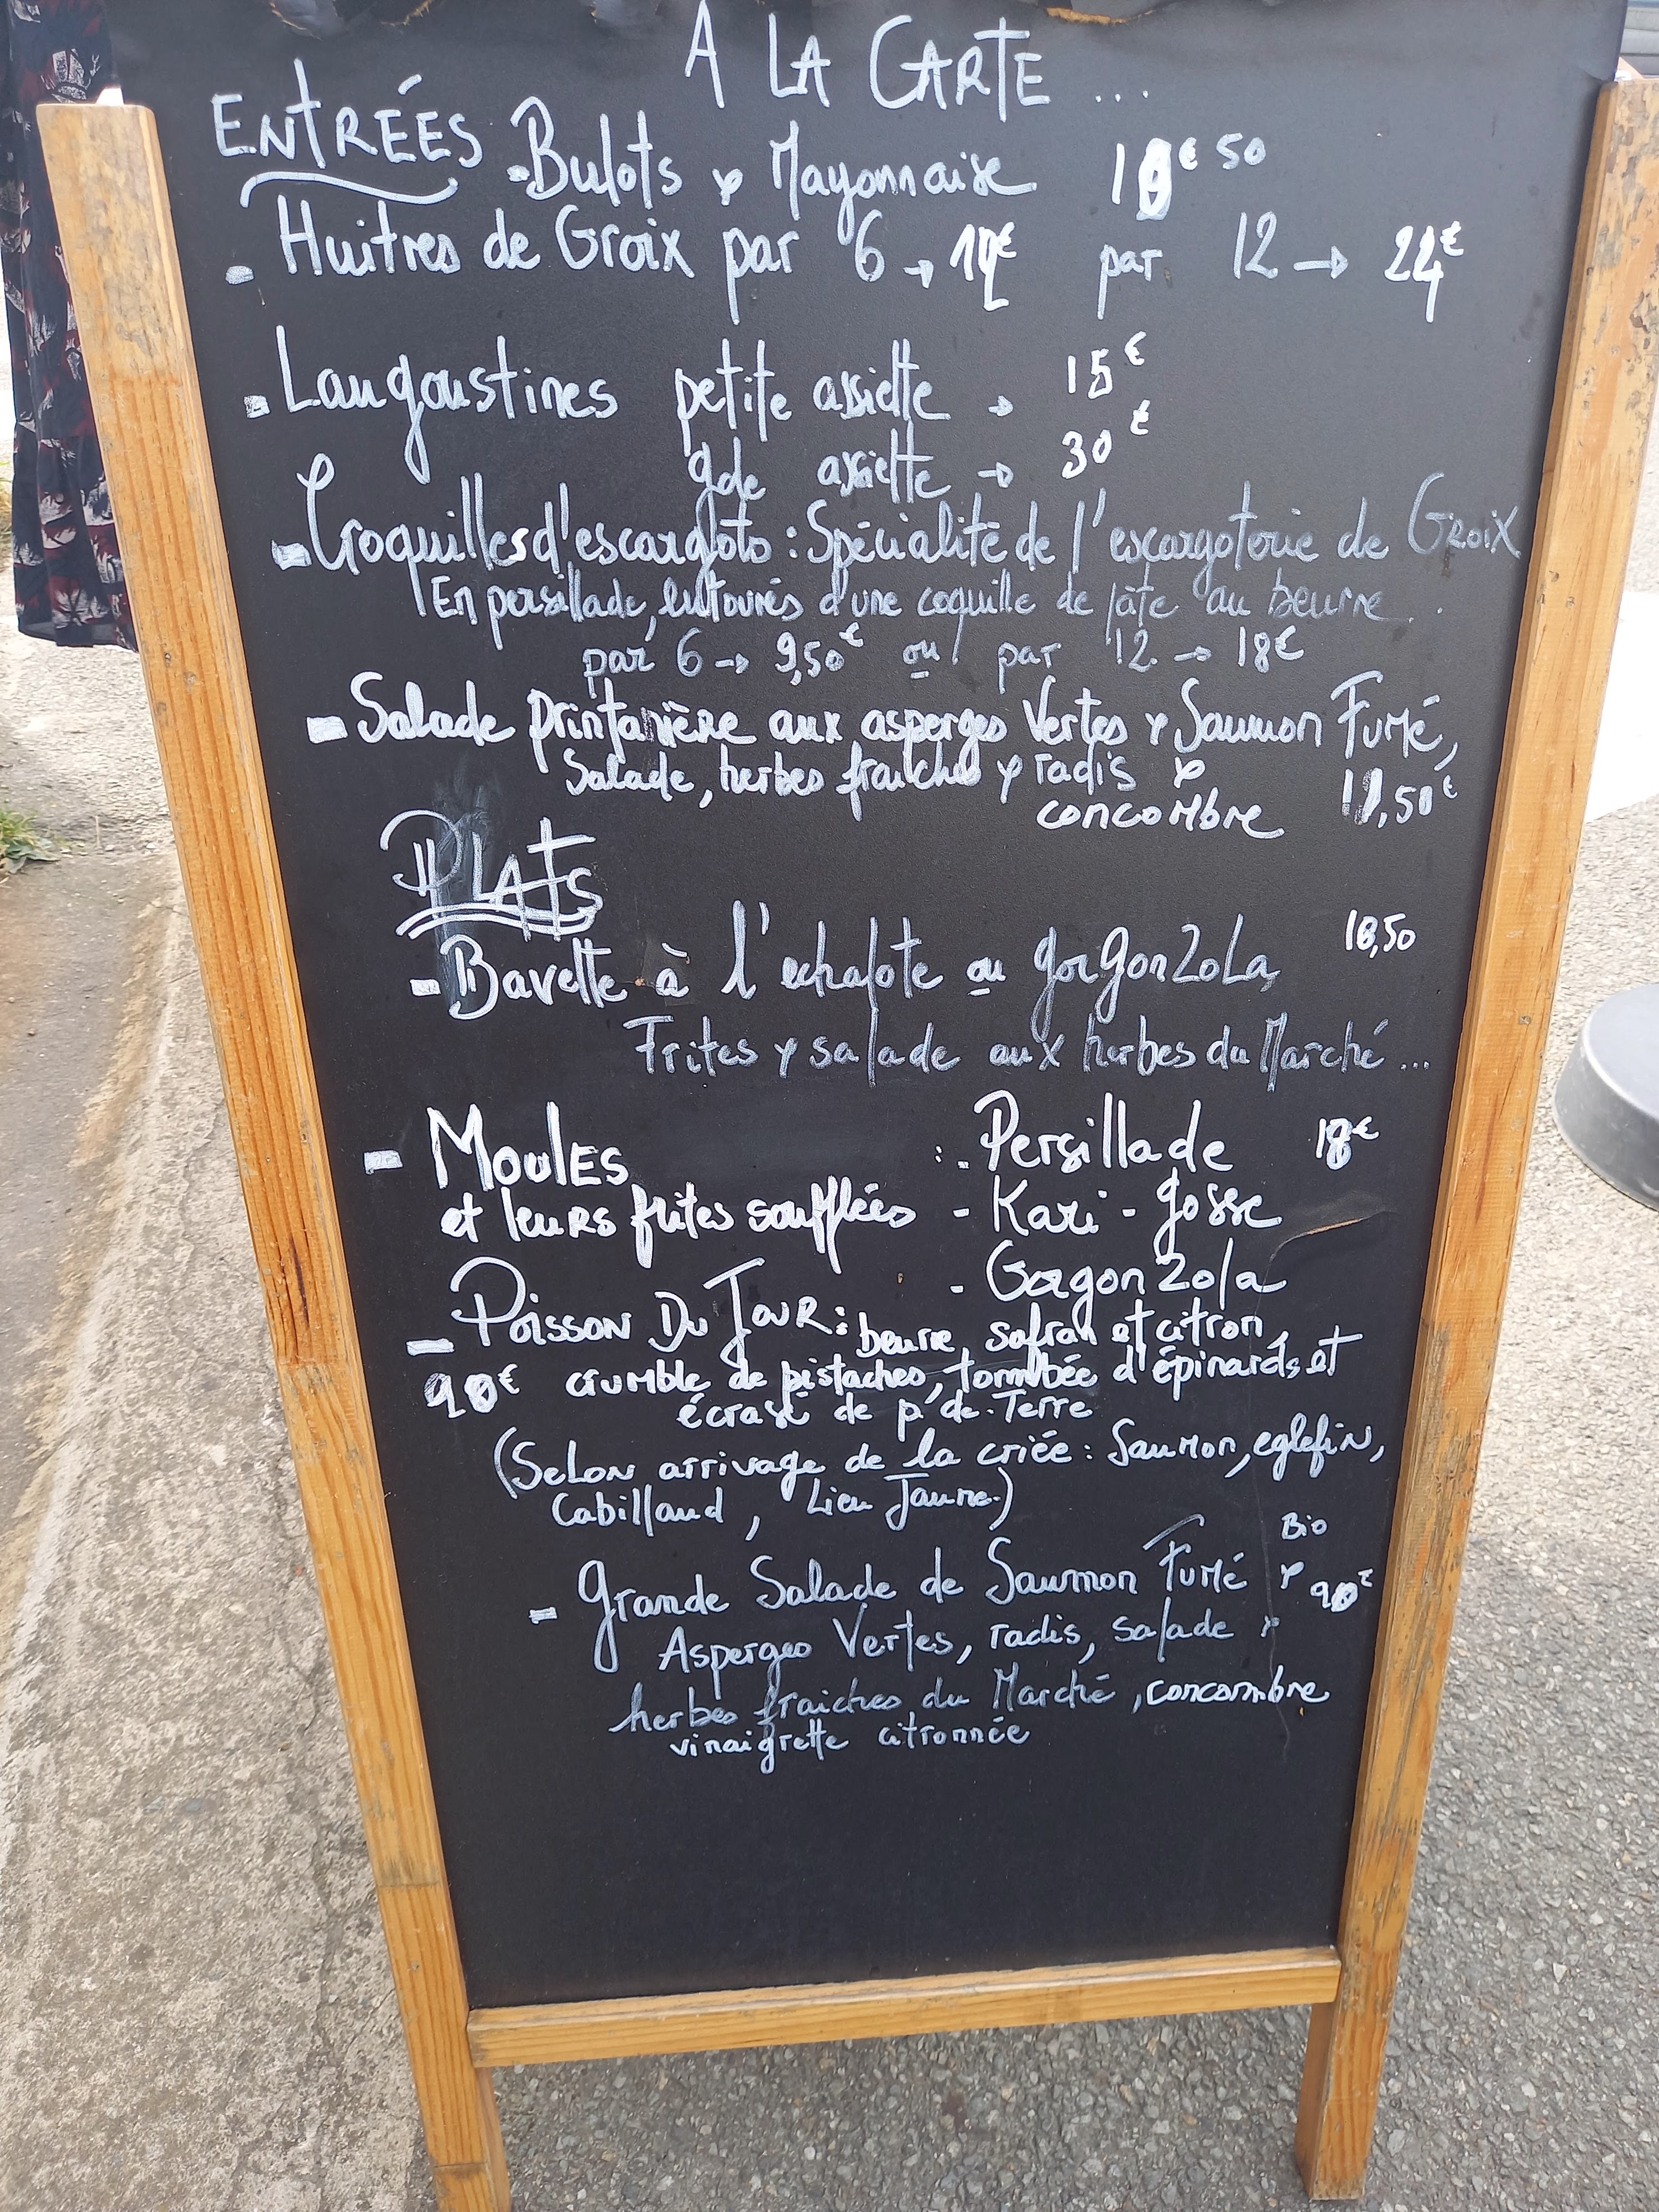 A LA CARTE ...
ENTRÉES - Bulots & Mayonnaise 10€50
- Huitres de Groix par 6 → 12€ par 12 → 24€
- Langoustines petite assiette → 15€
gde assiette → 30€
- Croquilles d'escargots : Spécialité de l'escargoterie de GROIX
En persillade, entourés d'une coquille de pâte au beurre.
par 6 → 9,50€ ou par 12 → 18€
- Salade printanière aux asperges Vertes & Saumon Fumé,
Salade, herbes fraiches & radis &
concombre 11,50€
PLATS
- Bavette à l'echalote ou gorgonzola, 18,50
Frites & salade aux herbes du Marché ...
- MOULES : - Persillade 18€
et leurs frites soufflées - Kari-gosse
- Gorgonzola
- POISSON DU JOUR : beurre safran et citron,
20€ crumble de pistaches, tombée d'épinards et
écrasé de p. de. Terre
(Selon arrivage de la criée : Saumon, eglefin,
Cabillaud, Lieu Jaune.)
Bio
- Grande Salade de Saumon Fumé & 20€
Asperges Vertes, radis, salade &
herbes fraiches du Marché, concombre
vinaigrette citronnée